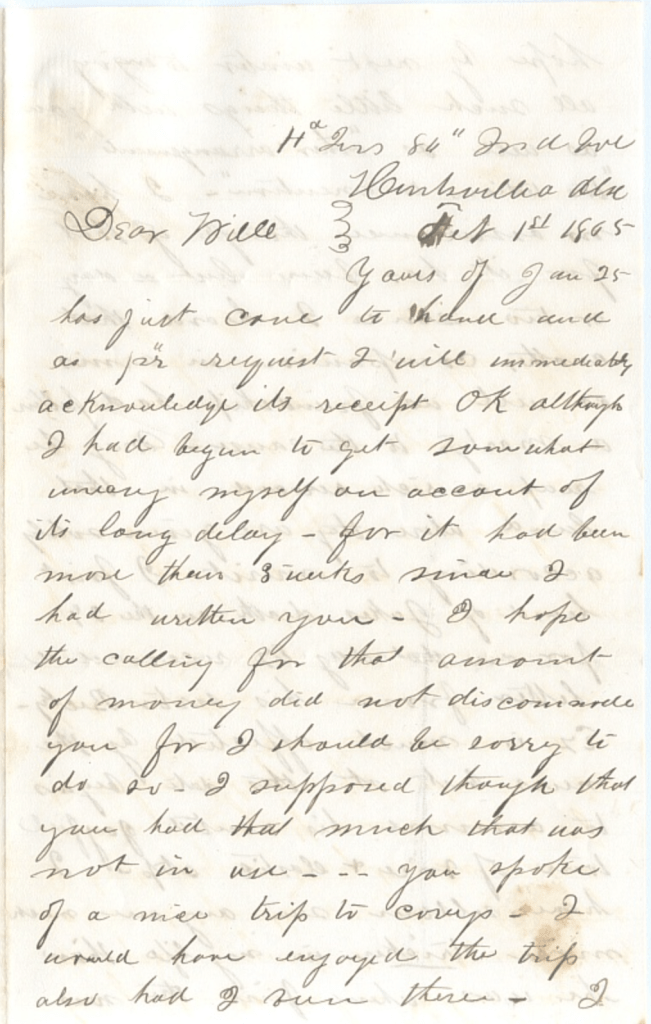 Hd Qrs 84" Ind Vol
Huntsville Ala
Dear Wille Feb 1st 1865
Yours of Jan 25
has just come to hand and
as pr request I will immediately
acknowledge its receipt OK although
I had begun to get somwhat
uneasy myself on accout of
its long delay - for it had been
more than 3 weeks since I
had written you - I hope
the calling for that amount
of money did not discommode
you for I should be sorry to
do so - I supposed though that
you had that much that was
not in use - - - you spoke
of a nice trip to coveys - I
would have enjoyed the trip
also had I been there - I